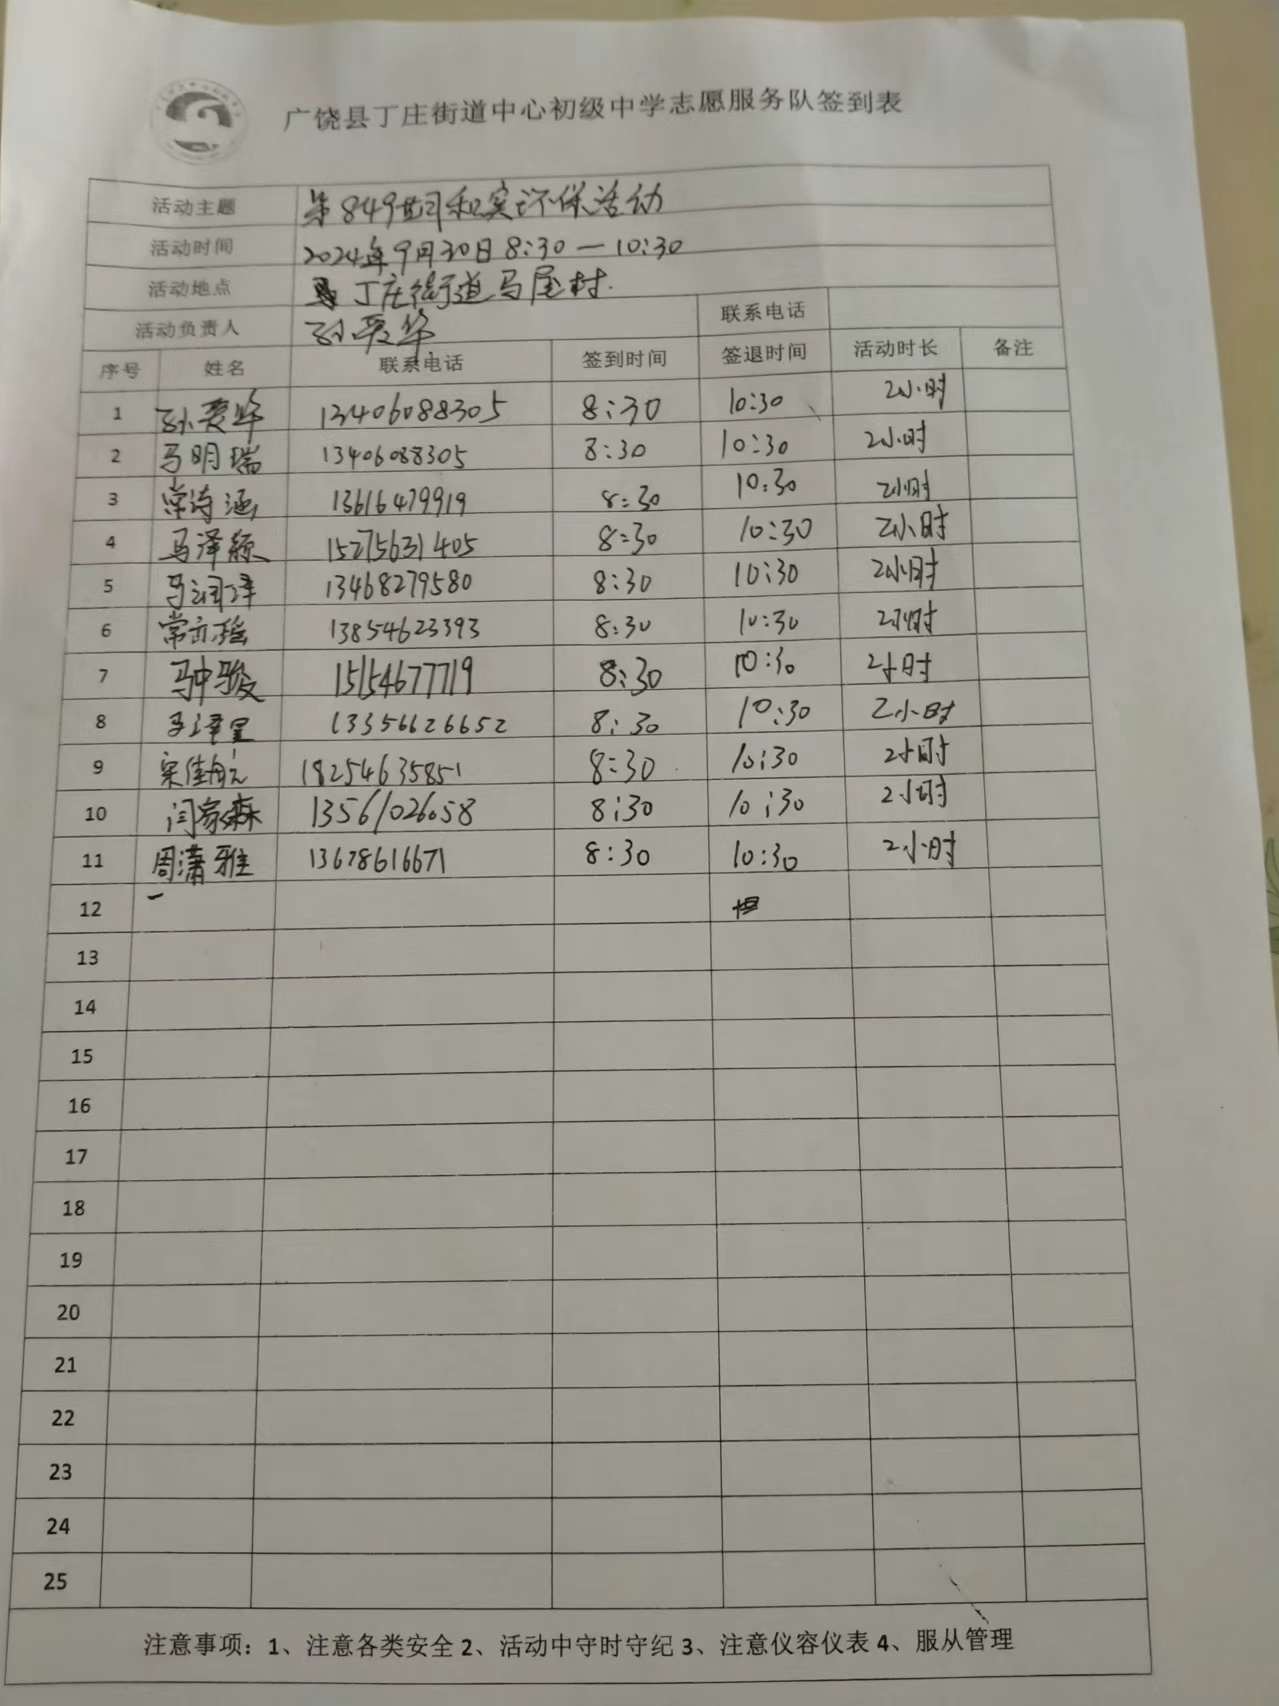 广饶县丁庄街道中心初级中学志愿服务队签到表
活动主题 第849期和实环保活动
活动时间 2024年9月30日 8:30—10:30
活动地点 丁庄街道马尾村
活动负责人 孙爱华 联系电话
序号 姓名 联系电话 签到时间 签退时间 活动时长 备注
1 孙爱华 13406088305 8:30 10:30 2小时
2 马明瑞 13406088305 8:30 10:30 2小时
3 常诗涵 13616479919 8:30 10:30 2小时
4 马泽颖 15275631405 8:30 10:30 2小时
5 马润泽 13468279580 8:30 10:30 2小时
6 常亦瑶 13854623393 8:30 10:30 2小时
7 马中骏 15154677719 8:30 10:30 2小时
8 13356626652 8:30 10:30 2小时
9 宋佳航 18254635851 8:30 10:30 2小时
10 闫家森 13561026058 8:30 10:30 2小时
11 周潇雅 13678616671 8:30 10:30 2小时
12
13
14
15
16
17
18
19
20
21
22
23
24
25
注意事项：1、注意各类安全 2、活动中守时守纪 3、注意仪容仪表 4、服从管理